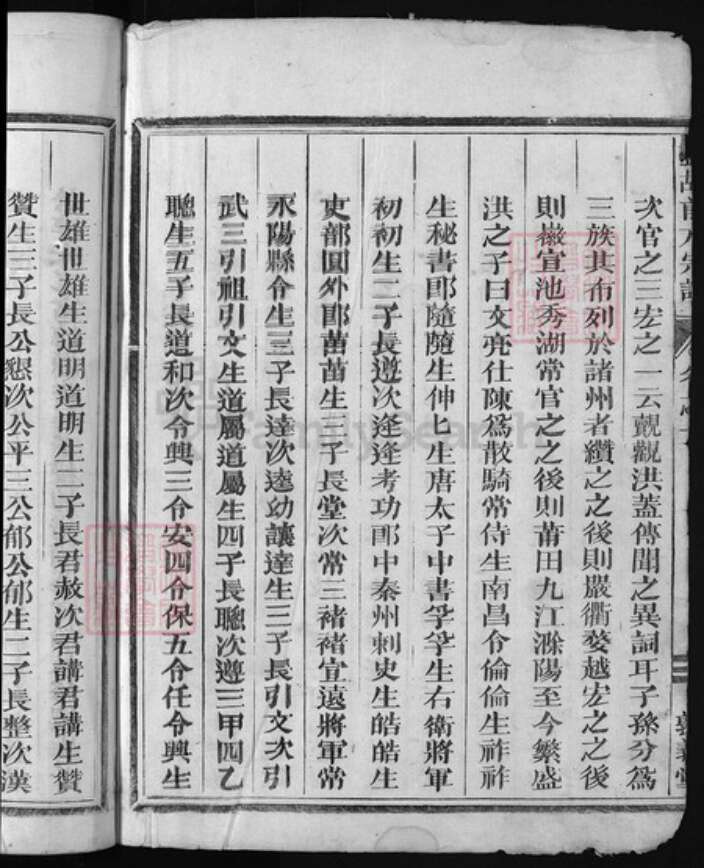 次官之三宏之一云觀觀洪蓋傳聞之異詞耳子孫分爲
三族其布列於諸州者纘之之後則嚴衢婺越宏之之後
則嶶宣池秀湖常官之之後則莆田九江滁陽至今繁盛
洪之子曰文亮仕陳爲散騎常侍生南昌令倫倫生祚祚
生秘書郎隨隨生伸匕生唐太子中書孚孚生右衛將軍
初初生二子長遵次逢逢考功郎中秦州刺史生皓皓生
吏部圓外郎菑菑生三子長堂次常三褚褚宣遠將軍常
永陽縣令生三子長達次逵幼讓達生三子長引文次引
武三引祖引文生道屬道屬生四子長聰次遵三甲四乙
聰生五子長道和次令興三令安四令保五令任令興生
世雄世雄生道明道明生二子長君赦次君講君講生贊
贊生三子長公懇次公平三公郁公郁生二子長整次漢
FamilySearch